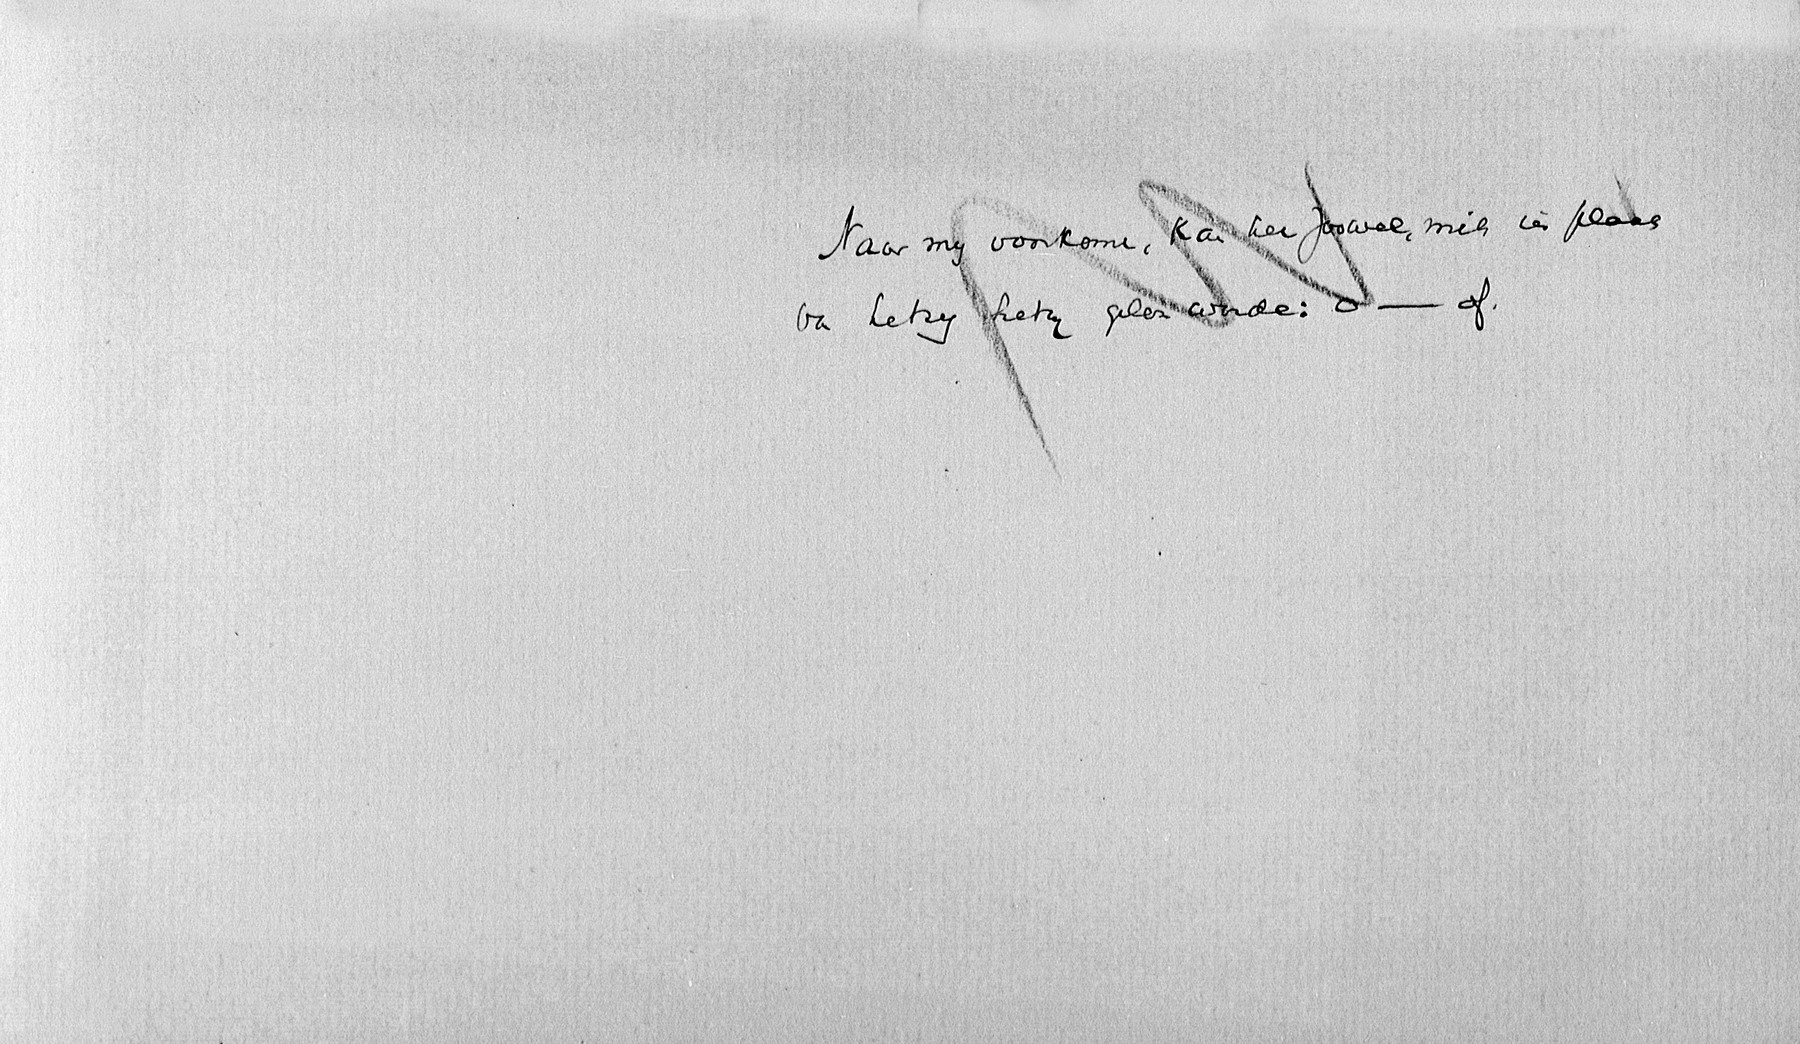 Naar my voorkomt, kan het Joowel, mits in plaats
van hetzy hetzy gelezen worde: o — of.